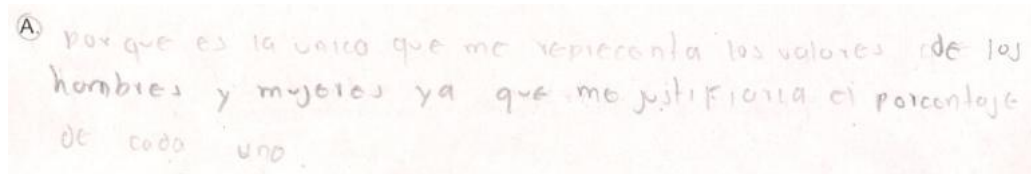 A. porque es la unico que me reprecenta los valores de los
hombres y mujeres ya que me justificaria el porcentaje
de cada uno.